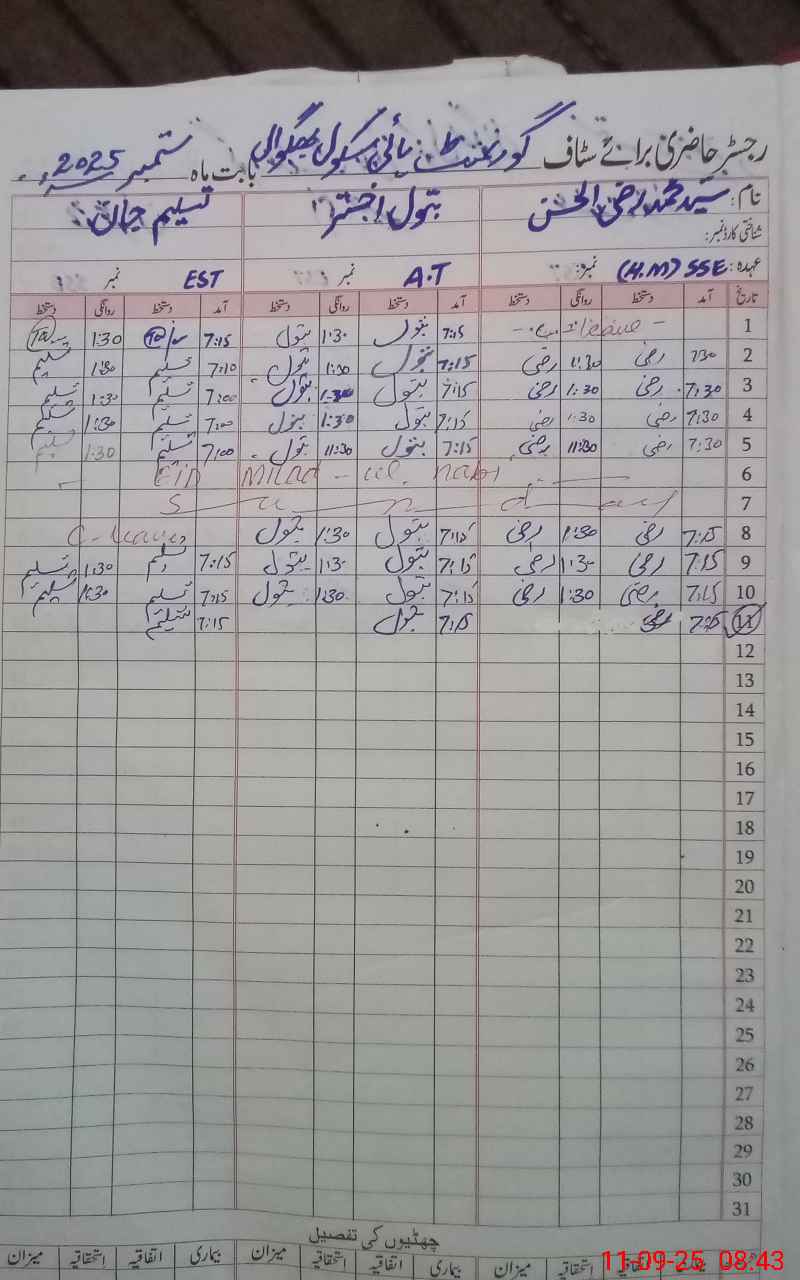 رجسٹر حاضری برائے سٹاف گورنمنٹ ہائی سکول بھگوالی بابت ماہ ستمبر 2025
نام: سید محمد رضی الحسن بتول اختر تسلیم جان
شناختی کارڈ نمبر:
عہدہ: SSE (H.M) نمبر: A.T نمبر EST نمبر
تاریخ آمد دستخط روانگی دستخط آمد دستخط روانگی دستخط آمد دستخط روانگی دستخط
1 leave 7:15 بتول 1:30 بتول 7:15 1:30
2 7:30 رضی 1:30 رضی 7:15 بتول 1:30 بتول 7:10 تسلیم 1:30 تسلیم
3 7:30 رضی 1:30 رضی 7:15 بتول 1:30 بتول 7:00 تسلیم 1:30 تسلیم
4 7:30 رضی 1:30 رضی 7:15 بتول 1:30 بتول 7:00 تسلیم 1:30 تسلیم
5 7:30 رضی 11:30 رضی 7:15 بتول 11:30 بتول 7:00 تسلیم 1:30 تسلیم
6 Eid Milad-ul-nabi
7 Sunday
8 7:15 رضی 1:30 رضی 7:15 بتول 1:30 بتول C-leave
9 7:15 رضی 1:30 رضی 7:15 بتول 1:30 بتول 7:15 تسلیم 1:30 تسلیم
10 7:15 رضی 1:30 رضی 7:15 بتول 1:30 بتول 7:15 تسلیم 1:30 تسلیم
11 7:15 رضی 7:15 بتول 7:15 تسلیم
12
13
14
15
16
17
18
19
20
21
22
23
24
25
26
27
28
29
30
31
چھٹیوں کی تفصیل
بیماری اتفاقیہ استحقاقیہ میزان بیماری اتفاقیہ استحقاقیہ میزان بیماری اتفاقیہ استحقاقیہ میزان
11-09-25 08:43